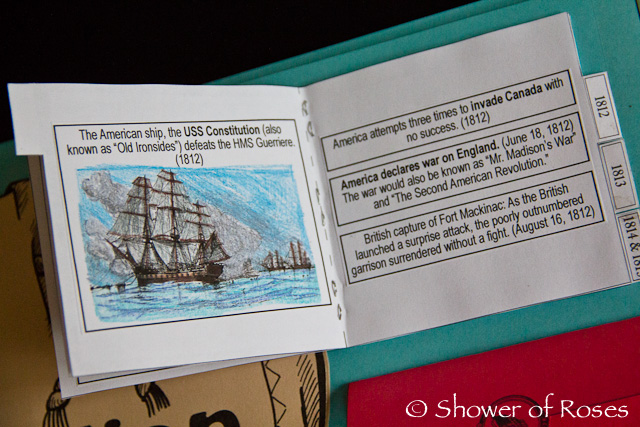 The American ship, the USS Constitution (also
known as "Old Ironsides") defeats the HMS Guerriere.
(1812)
America attempts three times to invade Canada with
no success. (1812)
America declares war on England. (June 18, 1812)
The war would also be known as "Mr. Madison's War"
and "The Second American Revolution."
British capture of Fort Mackinac: As the British
launched a surprise attack, the poorly outnumbered
garrison surrendered without a fight. (August 16, 1812)
1812
1813
1814 &
© Shower of Roses